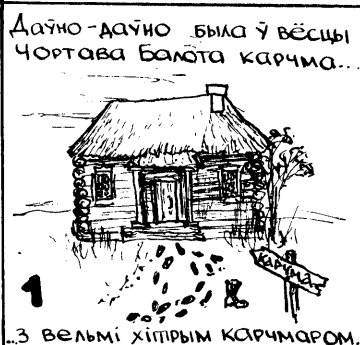 Даўно-даўно была ў вёсцы
Чортава Балота карчма...
КАРЧМА
1
...з вельмі хітрым карчмаром.